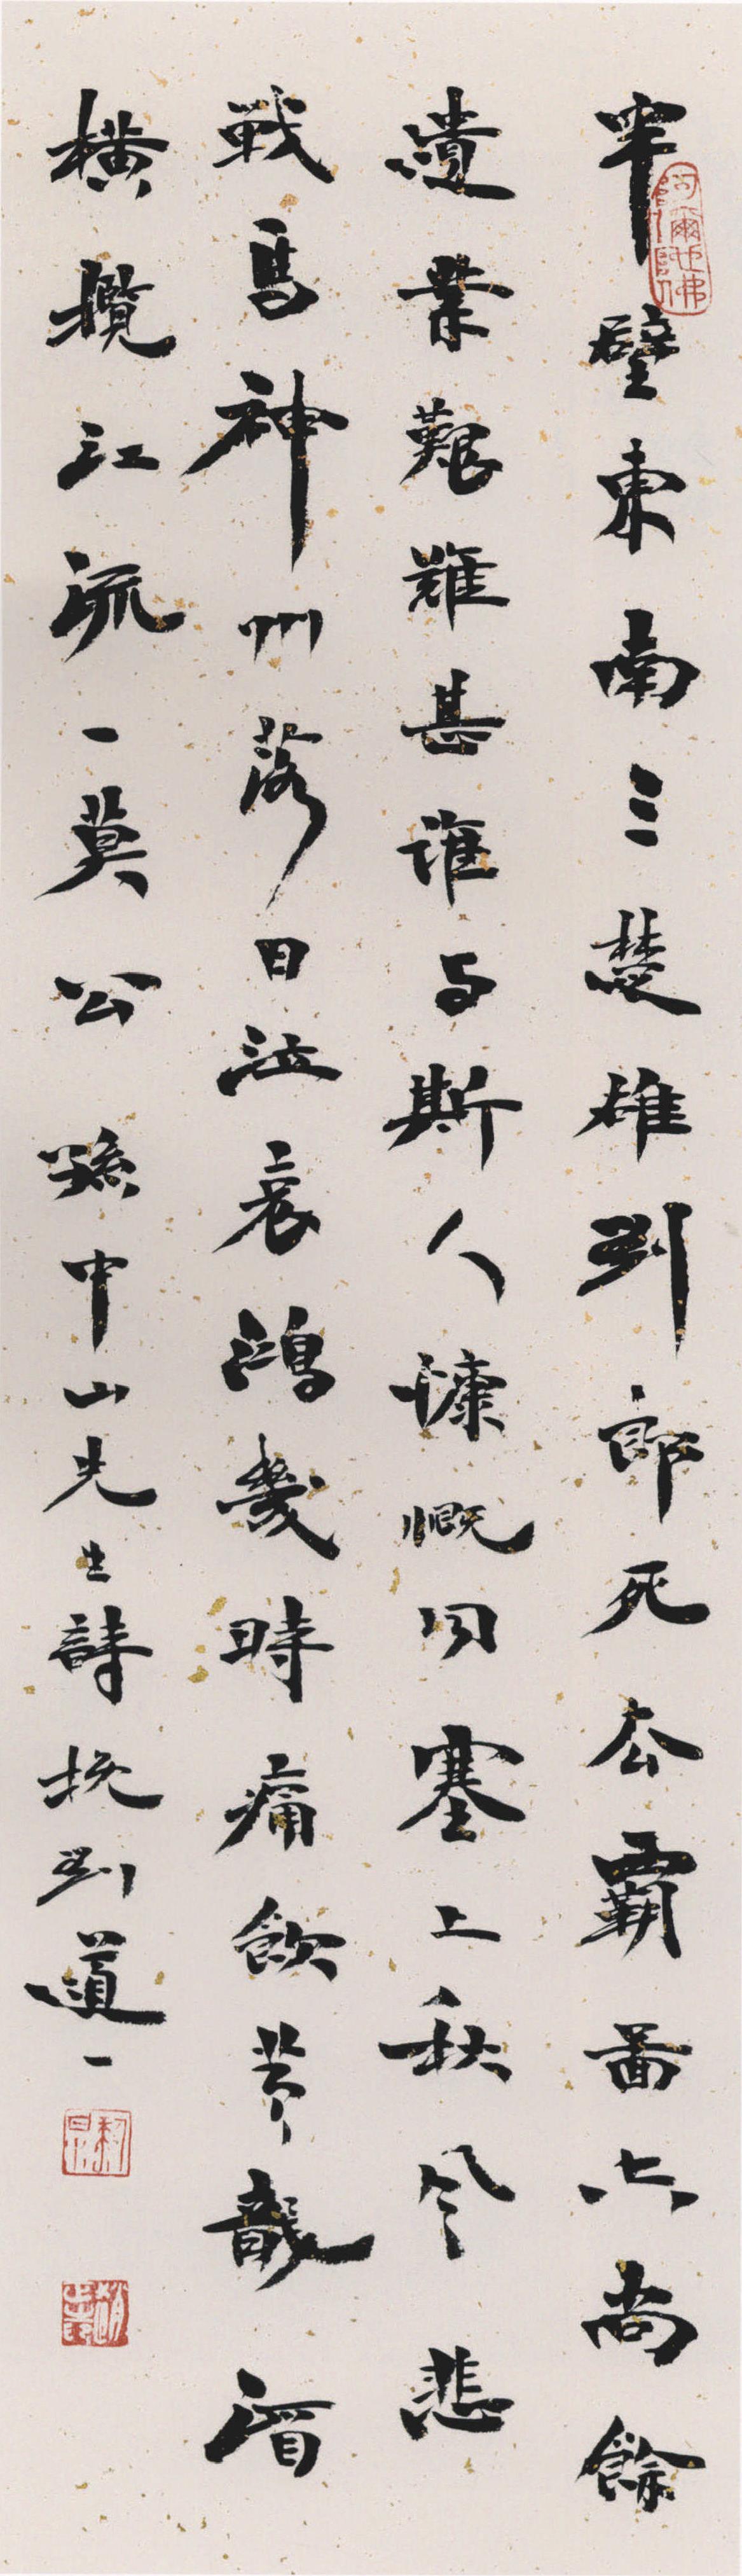 阿彌陀佛
半壁東南三楚雄劉郎死去霸圖空尚餘
遺業艱難甚誰与斯人慷慨同塞上秋風悲
戰馬神州落日泣哀鴻幾時痛飲黃龍酒
橫攬江流一奠公 孫中山先生詩挽劉道一